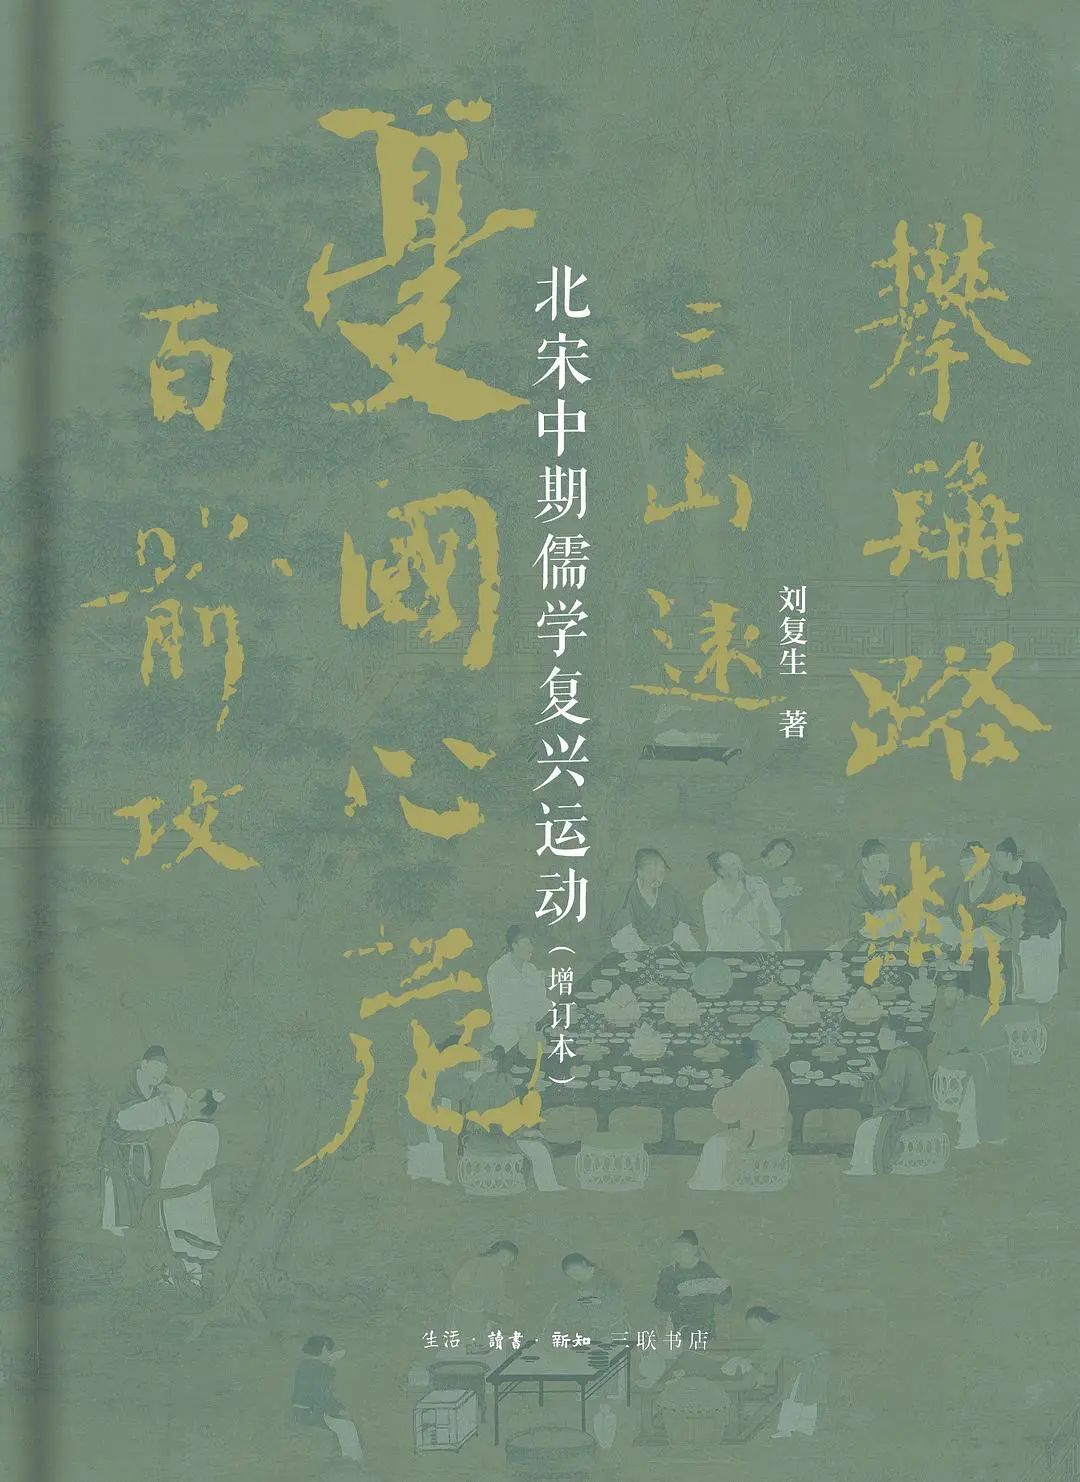 北宋中期儒学复兴运动(增订本)
刘复生 著
攀鱗路斷
三山遠
憂國心危
百箭攻
生活·讀書·新知 三联书店